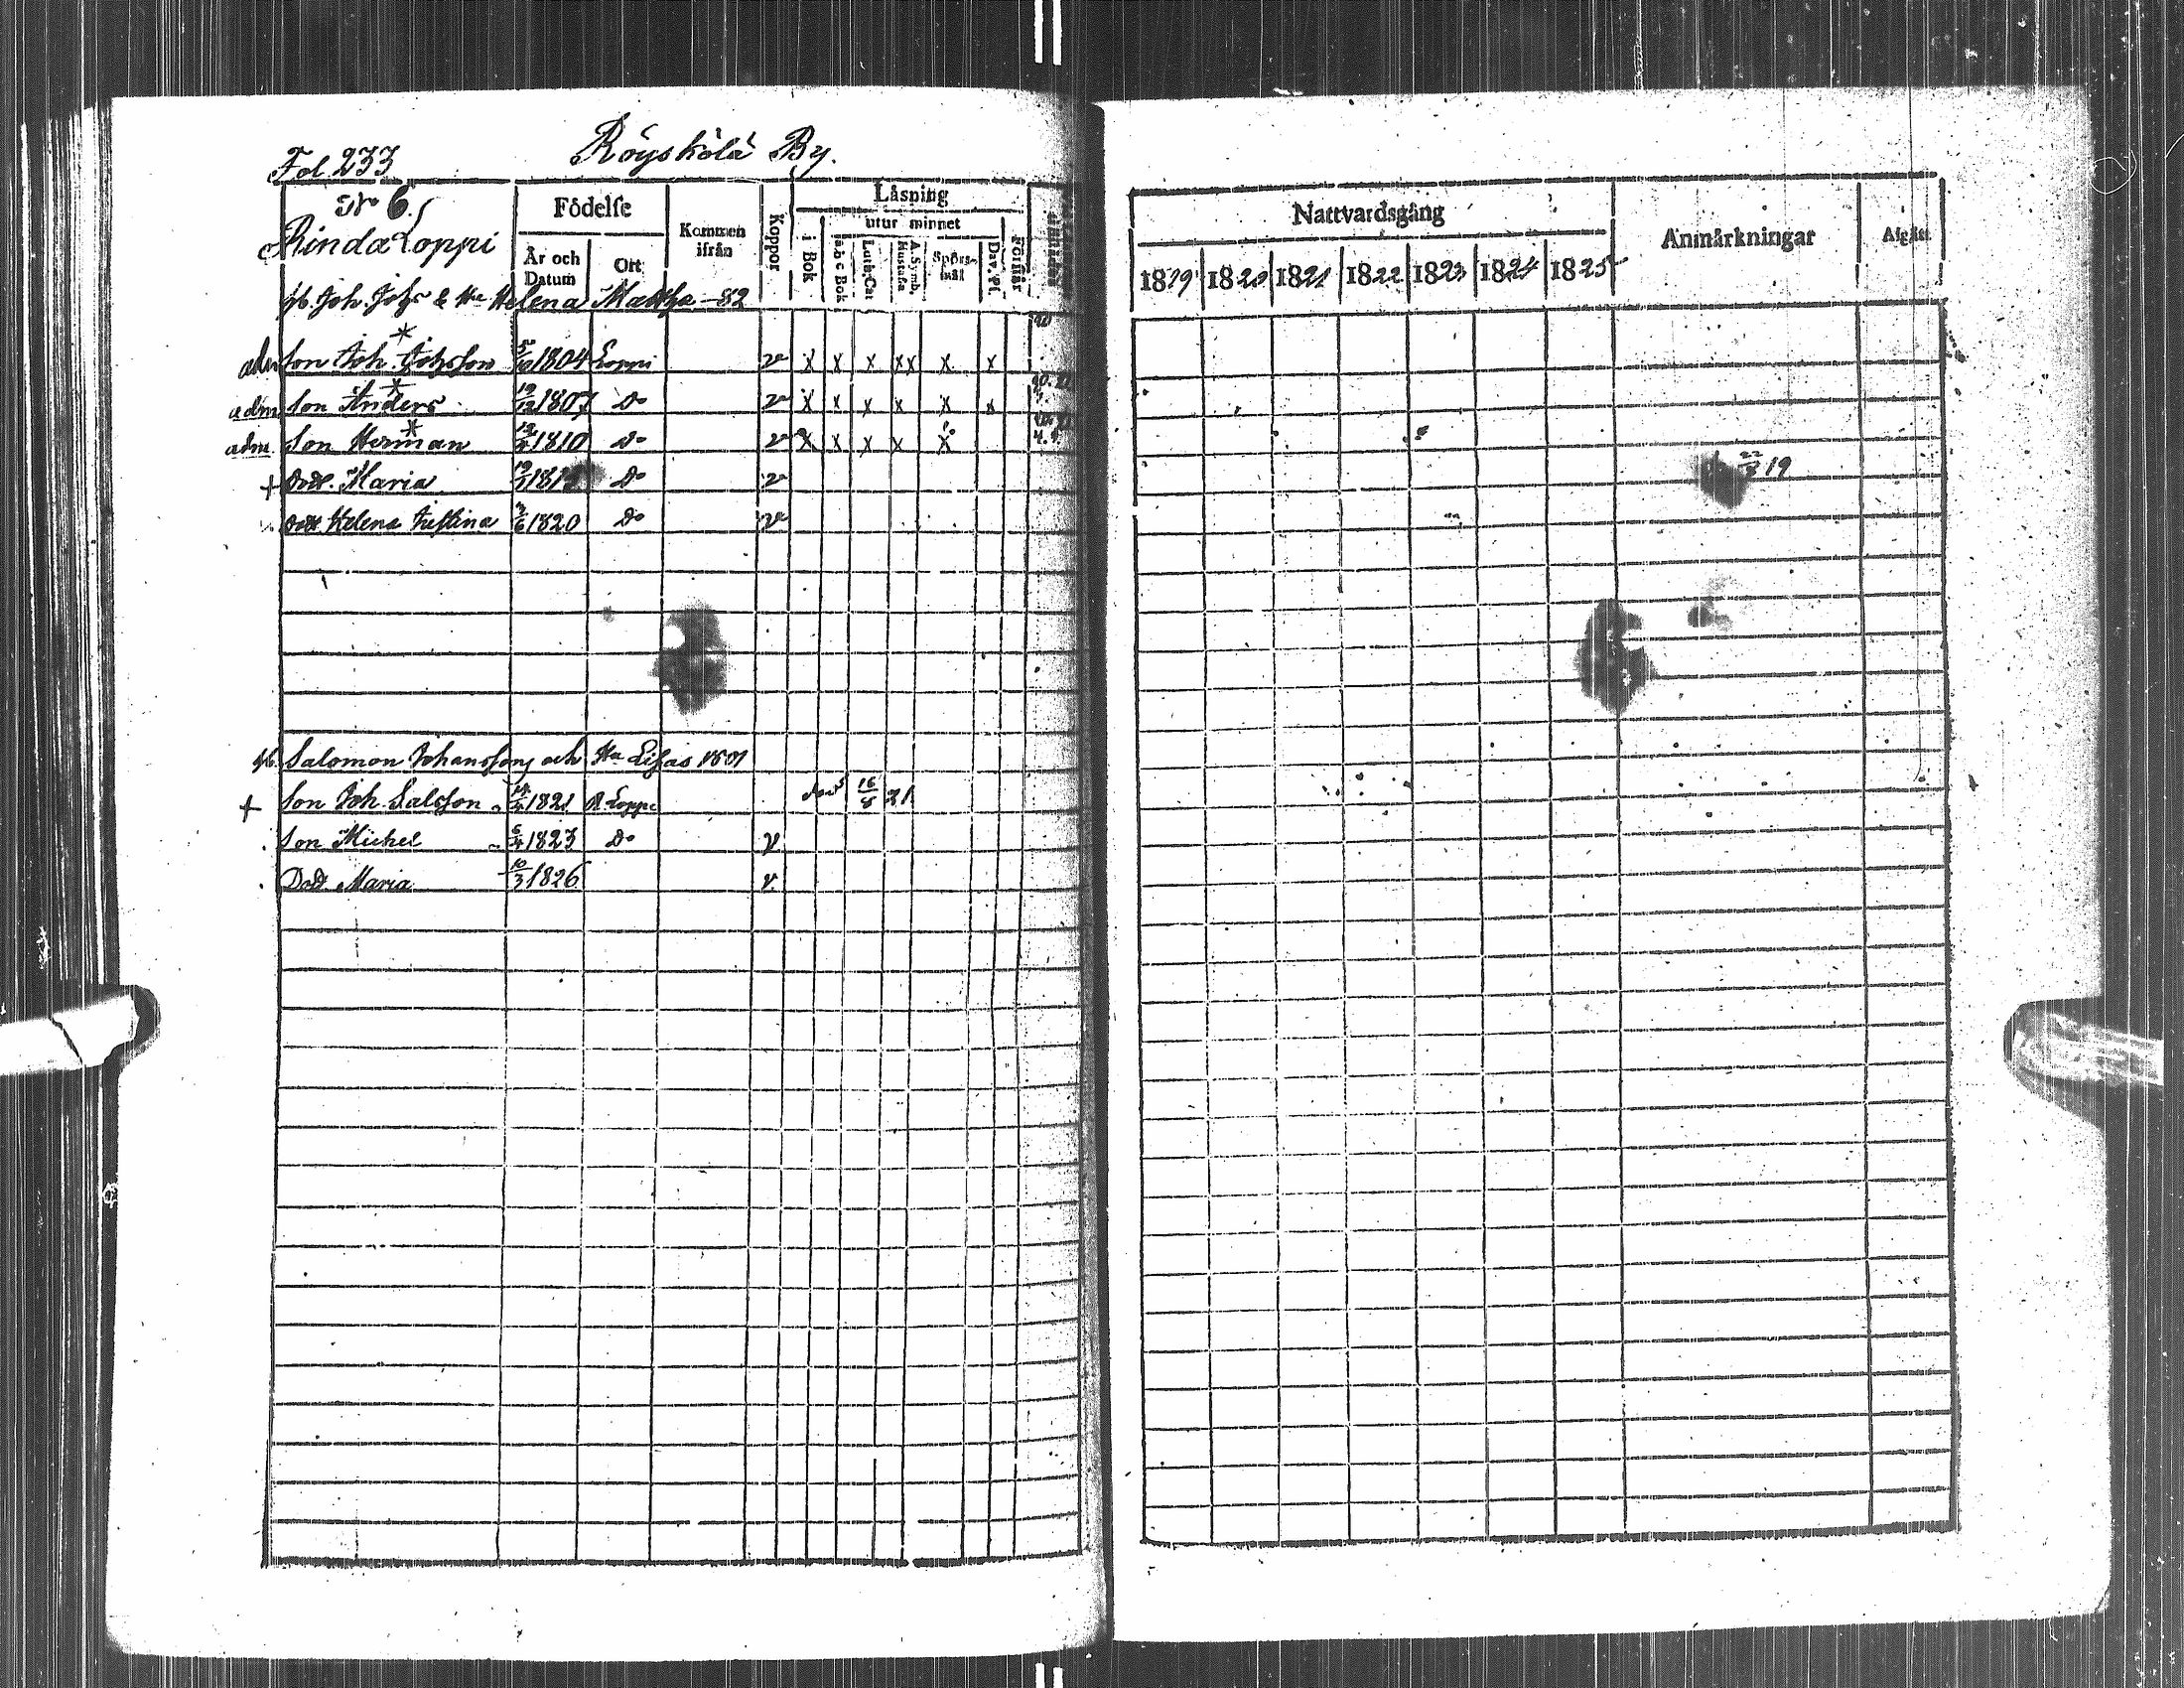 Fol. 233 Röyskölä By.
No 6.
Rinda Loppi
Födelse
År och Datum
Ort
Kommen ifrån
Koppor
Läsning
utur minnet
i Bok
a b c Bok
Luth. Cat
A. Symb. Hustafla
Spörsmål
Dav. Ps.
Förstår
Joh. Johs & Hu Helena Matth. -82
adm son Joh. Johsson 1804 Loppi v x x x xx x x
adm son Anders 19/12 1807 Do v x x x x x x
adm. Son Herman 1810 Do v x x x x x
+ Dott. Maria Do v
Dott. Helena Justina 1820 Do v
Salomon Johansson och Hu Lisas 1801
+ Son Joh. Salsson 1821 R. Loppi död 16/8 21
Son Michel 1823 Do v
Dod. Maria 10/3 1826 v.
Nattvardsgång
Anmärkningar
Afgått
1819 1820 1821 1822 1823 1824 1825
19